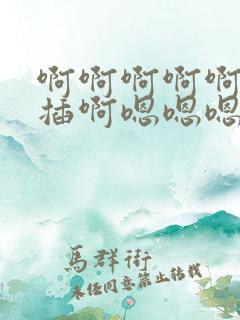 啊啊啊啊啊
插啊嗯嗯嗯
馬群街
未经同意禁止转载